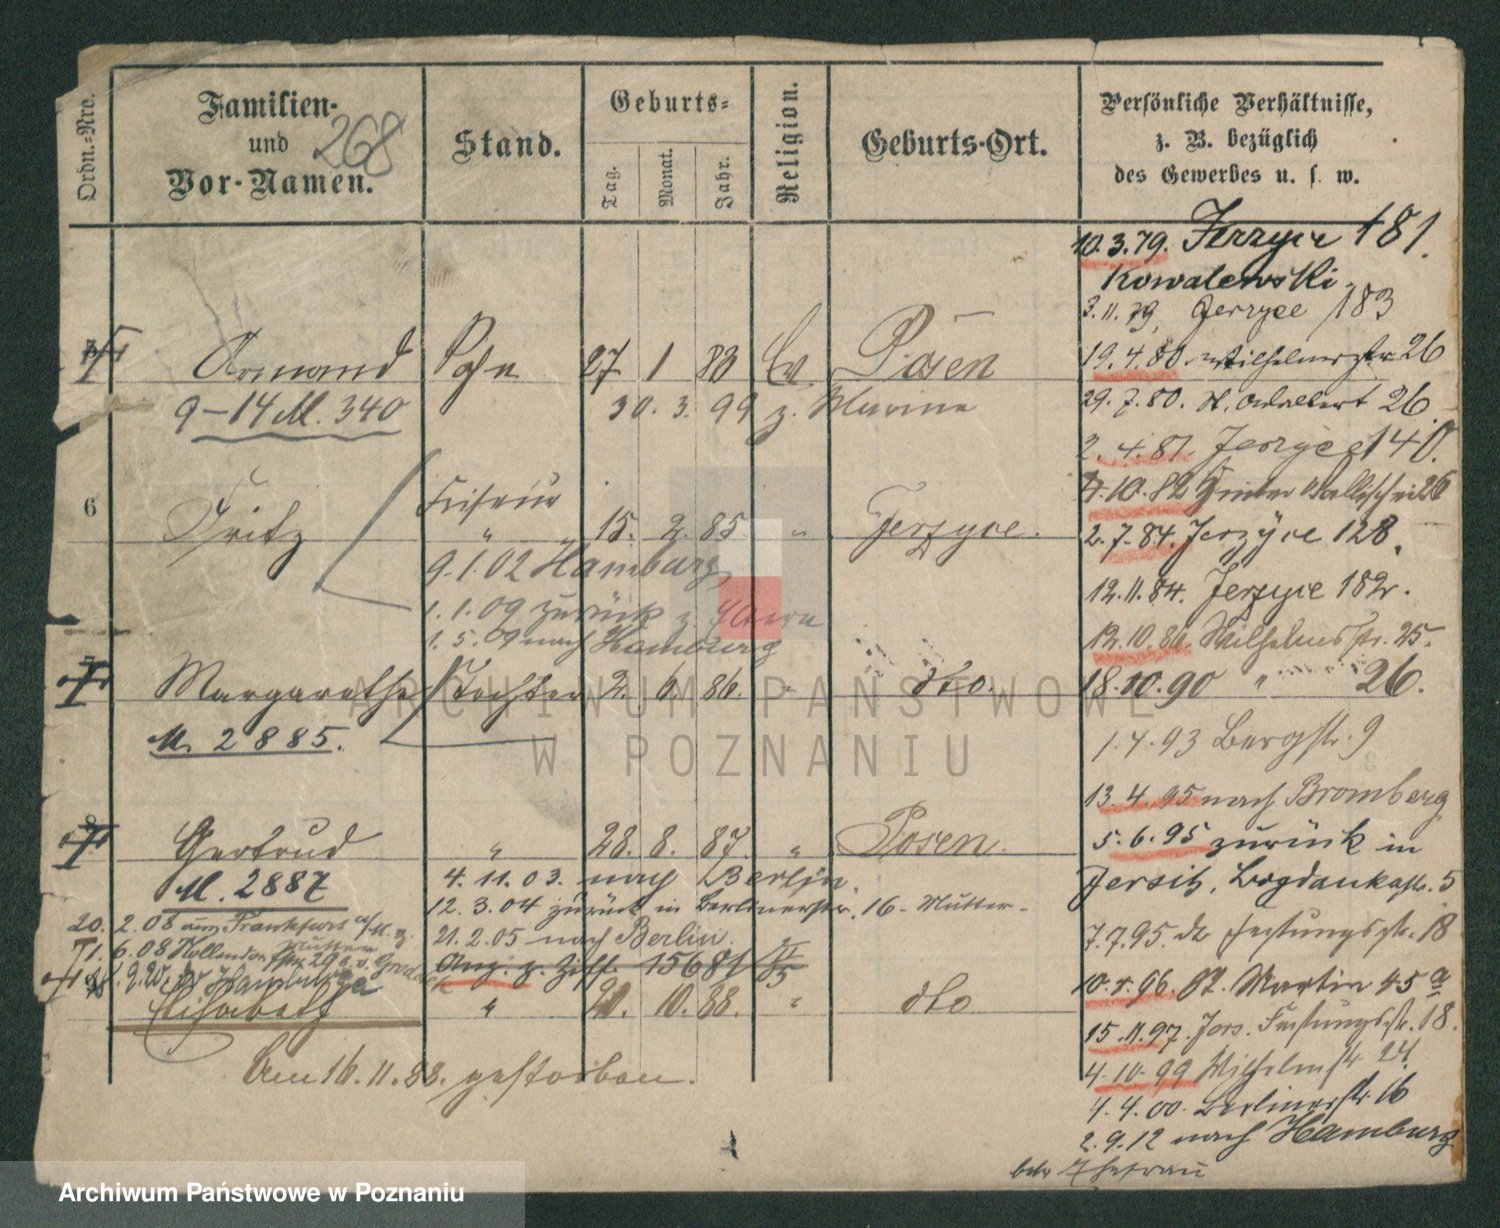 Ordn.-Nro.
Familien-
und
Vor-Namen.
268
Stand.
Geburts-
Tag.
Monat.
Jahr.
Religion.
Geburts-Ort.
Persönliche Verhältnisse,
z. B. bezüglich
des Gewerbes u. s. w.
Armand Sohn 27 1 83 Ev Posen
9-14 M. 340
30. 3. 99 z. Marine
6 Fritz Friseur
" " 15. 2. 85. " Jerzyce.
9.1.02 Hamburg
1.1.09 zurück z.
1.5.09 nach Hamburg
7 Margarethe Tochter 2. 6. 86. " dto.
M. 2885.
8 Gertrud " 28. 8. 87. " Posen.
M. 2887
4. 11. 03. nach Berlin.
12. 3. 04 zurück in Berlinerstr. 16 - Mutter -
21. 2. 05 nach Berlin.
20. 2. 08 aus Frankfurt a/M. z.
Mutter
1. 6. 08
Anz. z. Ziff. 15681
Elisabeth " 20. 10. 88. " dto
Am 16. 11. 88. gestorben.
10. 3. 79. Jerzyce 181.
Kowalewski.
3. 11. 79. Jerzyce 183
19. 4. 80. Wilhelmstr 26
29. 7. 80. St. Adalbert 26
2. 4. 81. Jerzyce 140.
4. 10. 82 Hinter Wallischei 26
2. 7. 84. Jerzyce 128.
12. 11. 84. Jerzyce 182.
12. 10. 86. Wilhelmsstr. 25.
18. 10. 90 " 26.
1. 4. 93 Bergstr. 9
13. 4. 95 nach Bromberg
5. 6. 95 zurück in
Jersitz, Bogdankastr. 5
7. 7. 95. do Festungsstr. 18
10. 5. 96. St. Martin 45 a
15. 11. 97. Jers. Festungsstr. 18.
4. 10. 99 Wilhelmstr. 24
4. 4. 00. Berlinerstr. 16
2. 9. 12 nach Hamburg
Ehefrau
ARCHIWUM PAŃSTWOWE
W POZNANIU
Archiwum Państwowe w Poznaniu